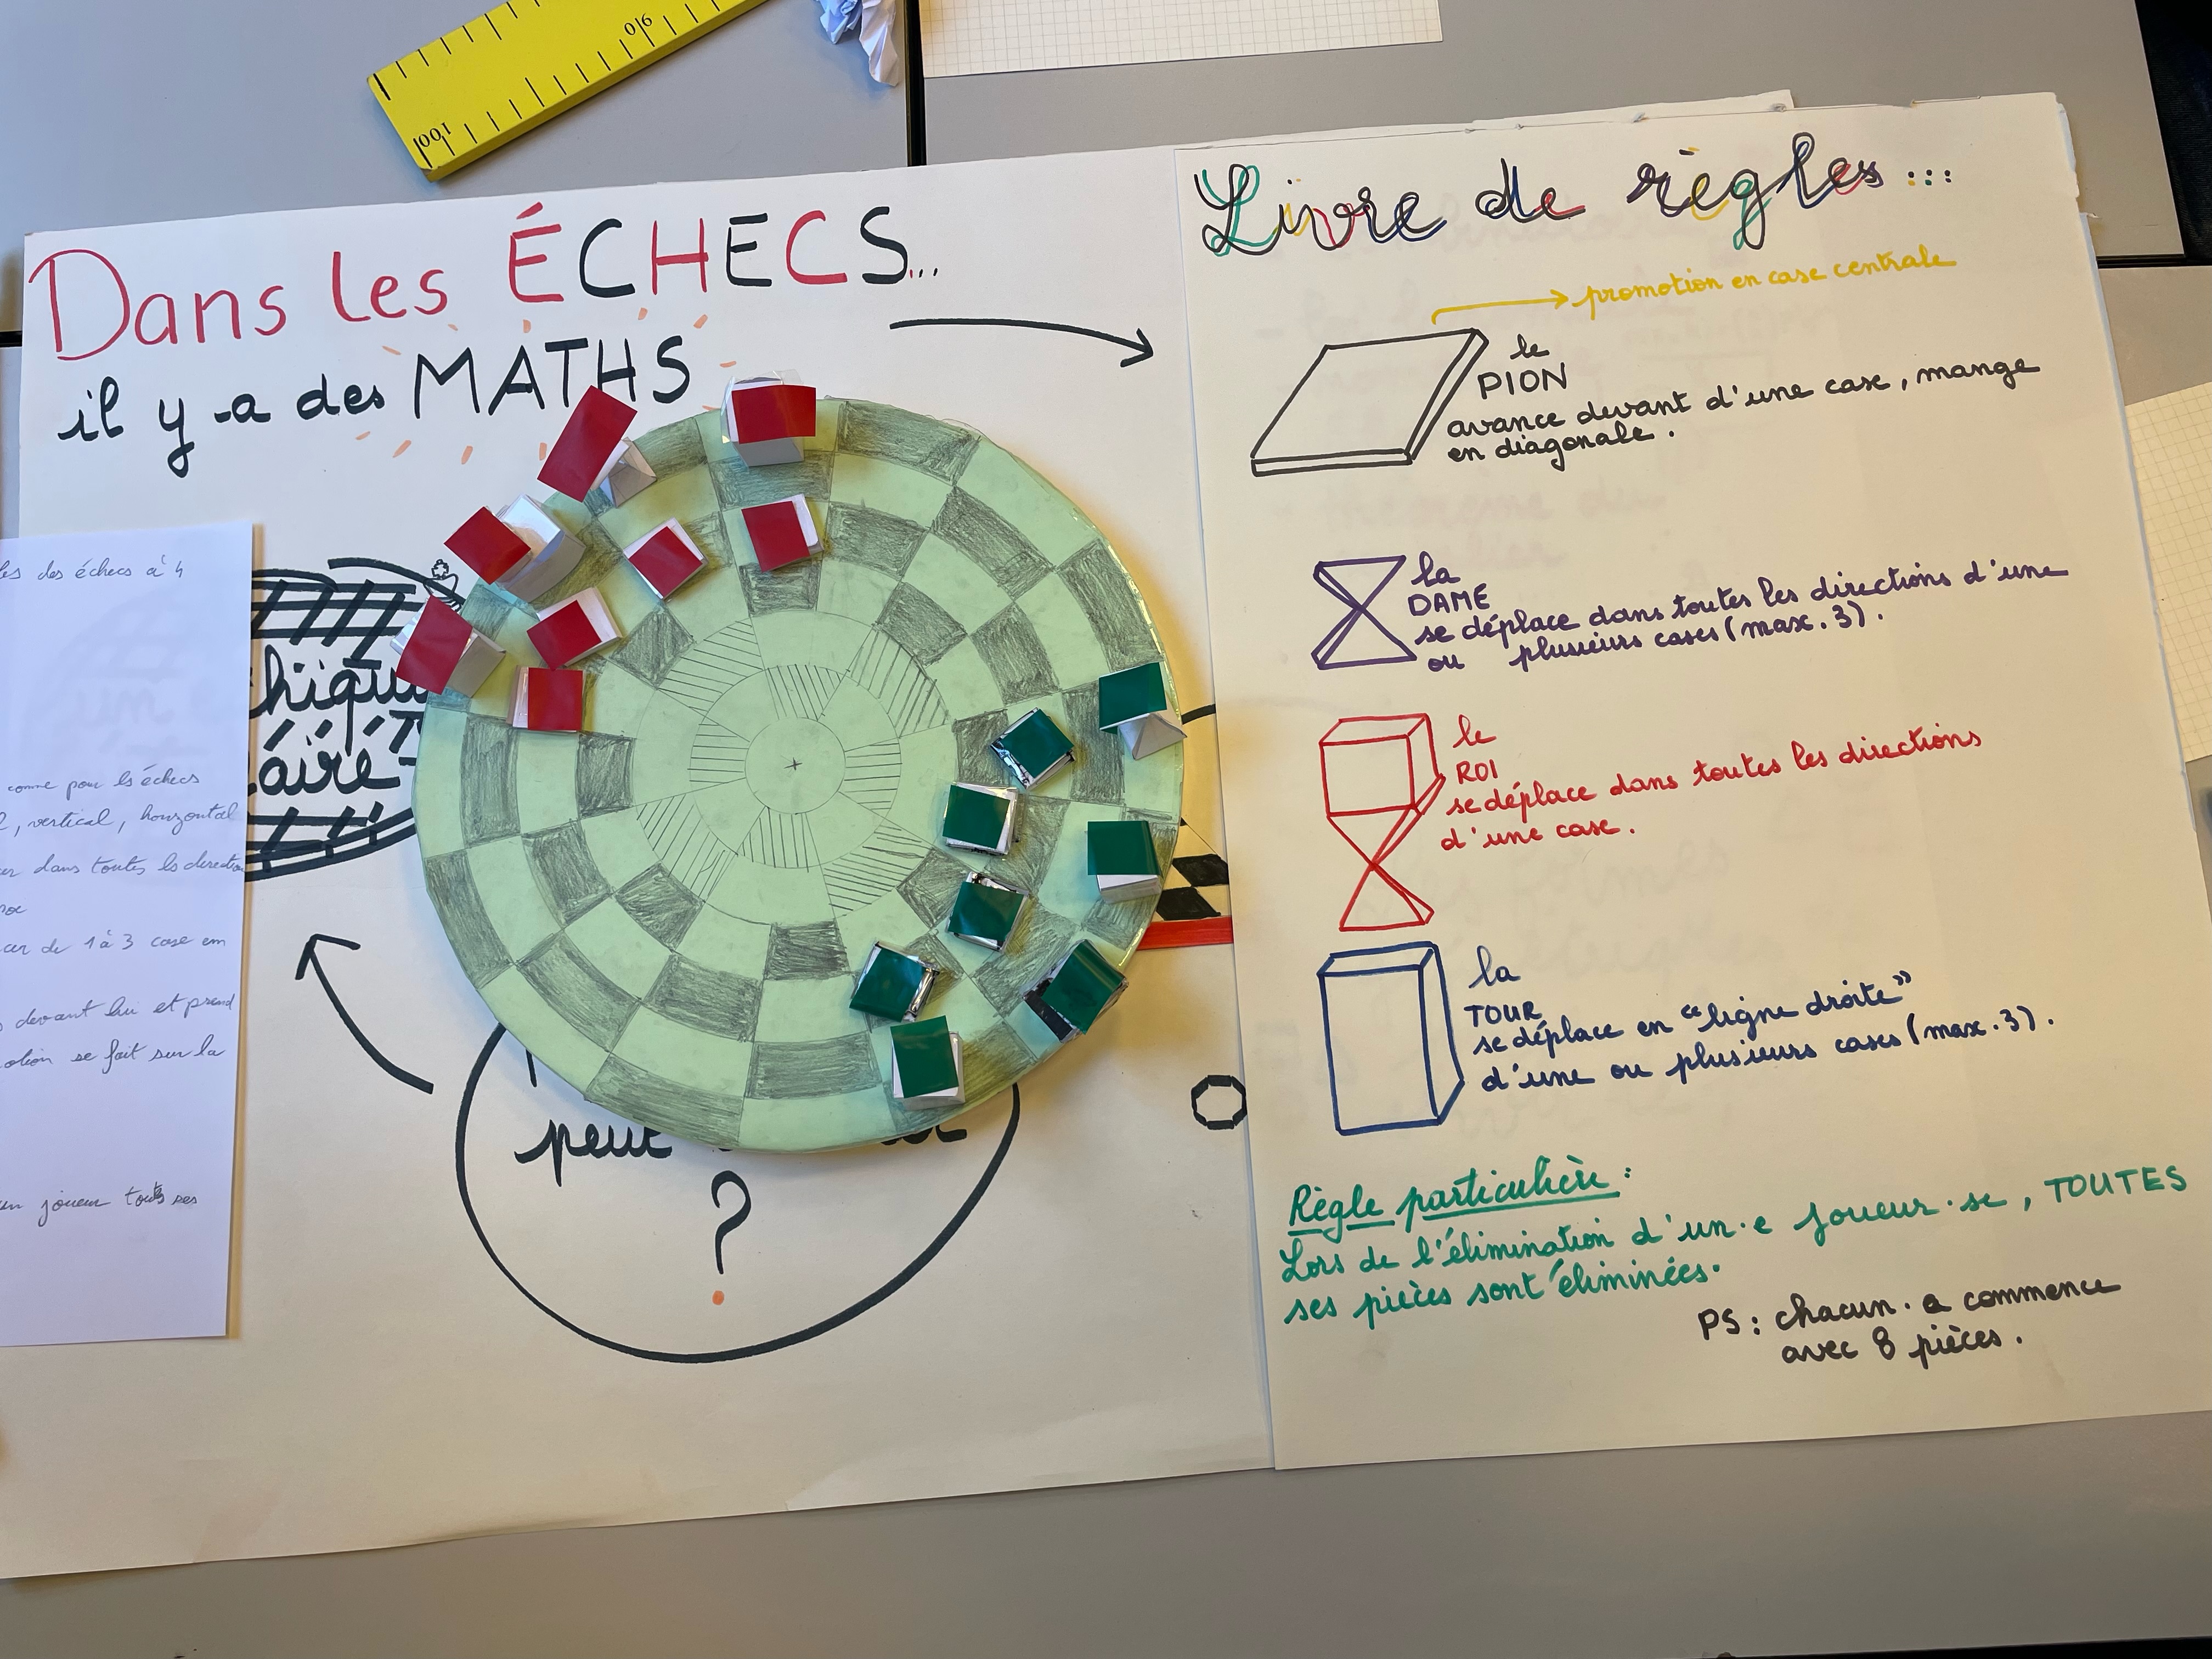 90
100
Dans les ÉCHECS...
il y a des MATHS
des échecs à 4
comme pour les échecs
, vertical, horizontal
dans toutes les direction
de 1 à 3 case em
devant lui et prend
se fait sur la
joueur toutes ses
peut
?
Livre de règles...
promotion en case centrale
le
PION
avance devant d'une case, mange
en diagonale.
la
DAME
se déplace dans toutes les directions d'une
ou plusieurs cases (max. 3).
le
ROI
se déplace dans toutes les directions
d'une case.
la
TOUR
se déplace en "ligne droite"
d'une ou plusieurs cases (max. 3).
Règle particulière :
Lors de l'élimination d'un·e joueur·se, TOUTES
ses pièces sont éliminées.
PS : chacun·e commence
avec 8 pièces.